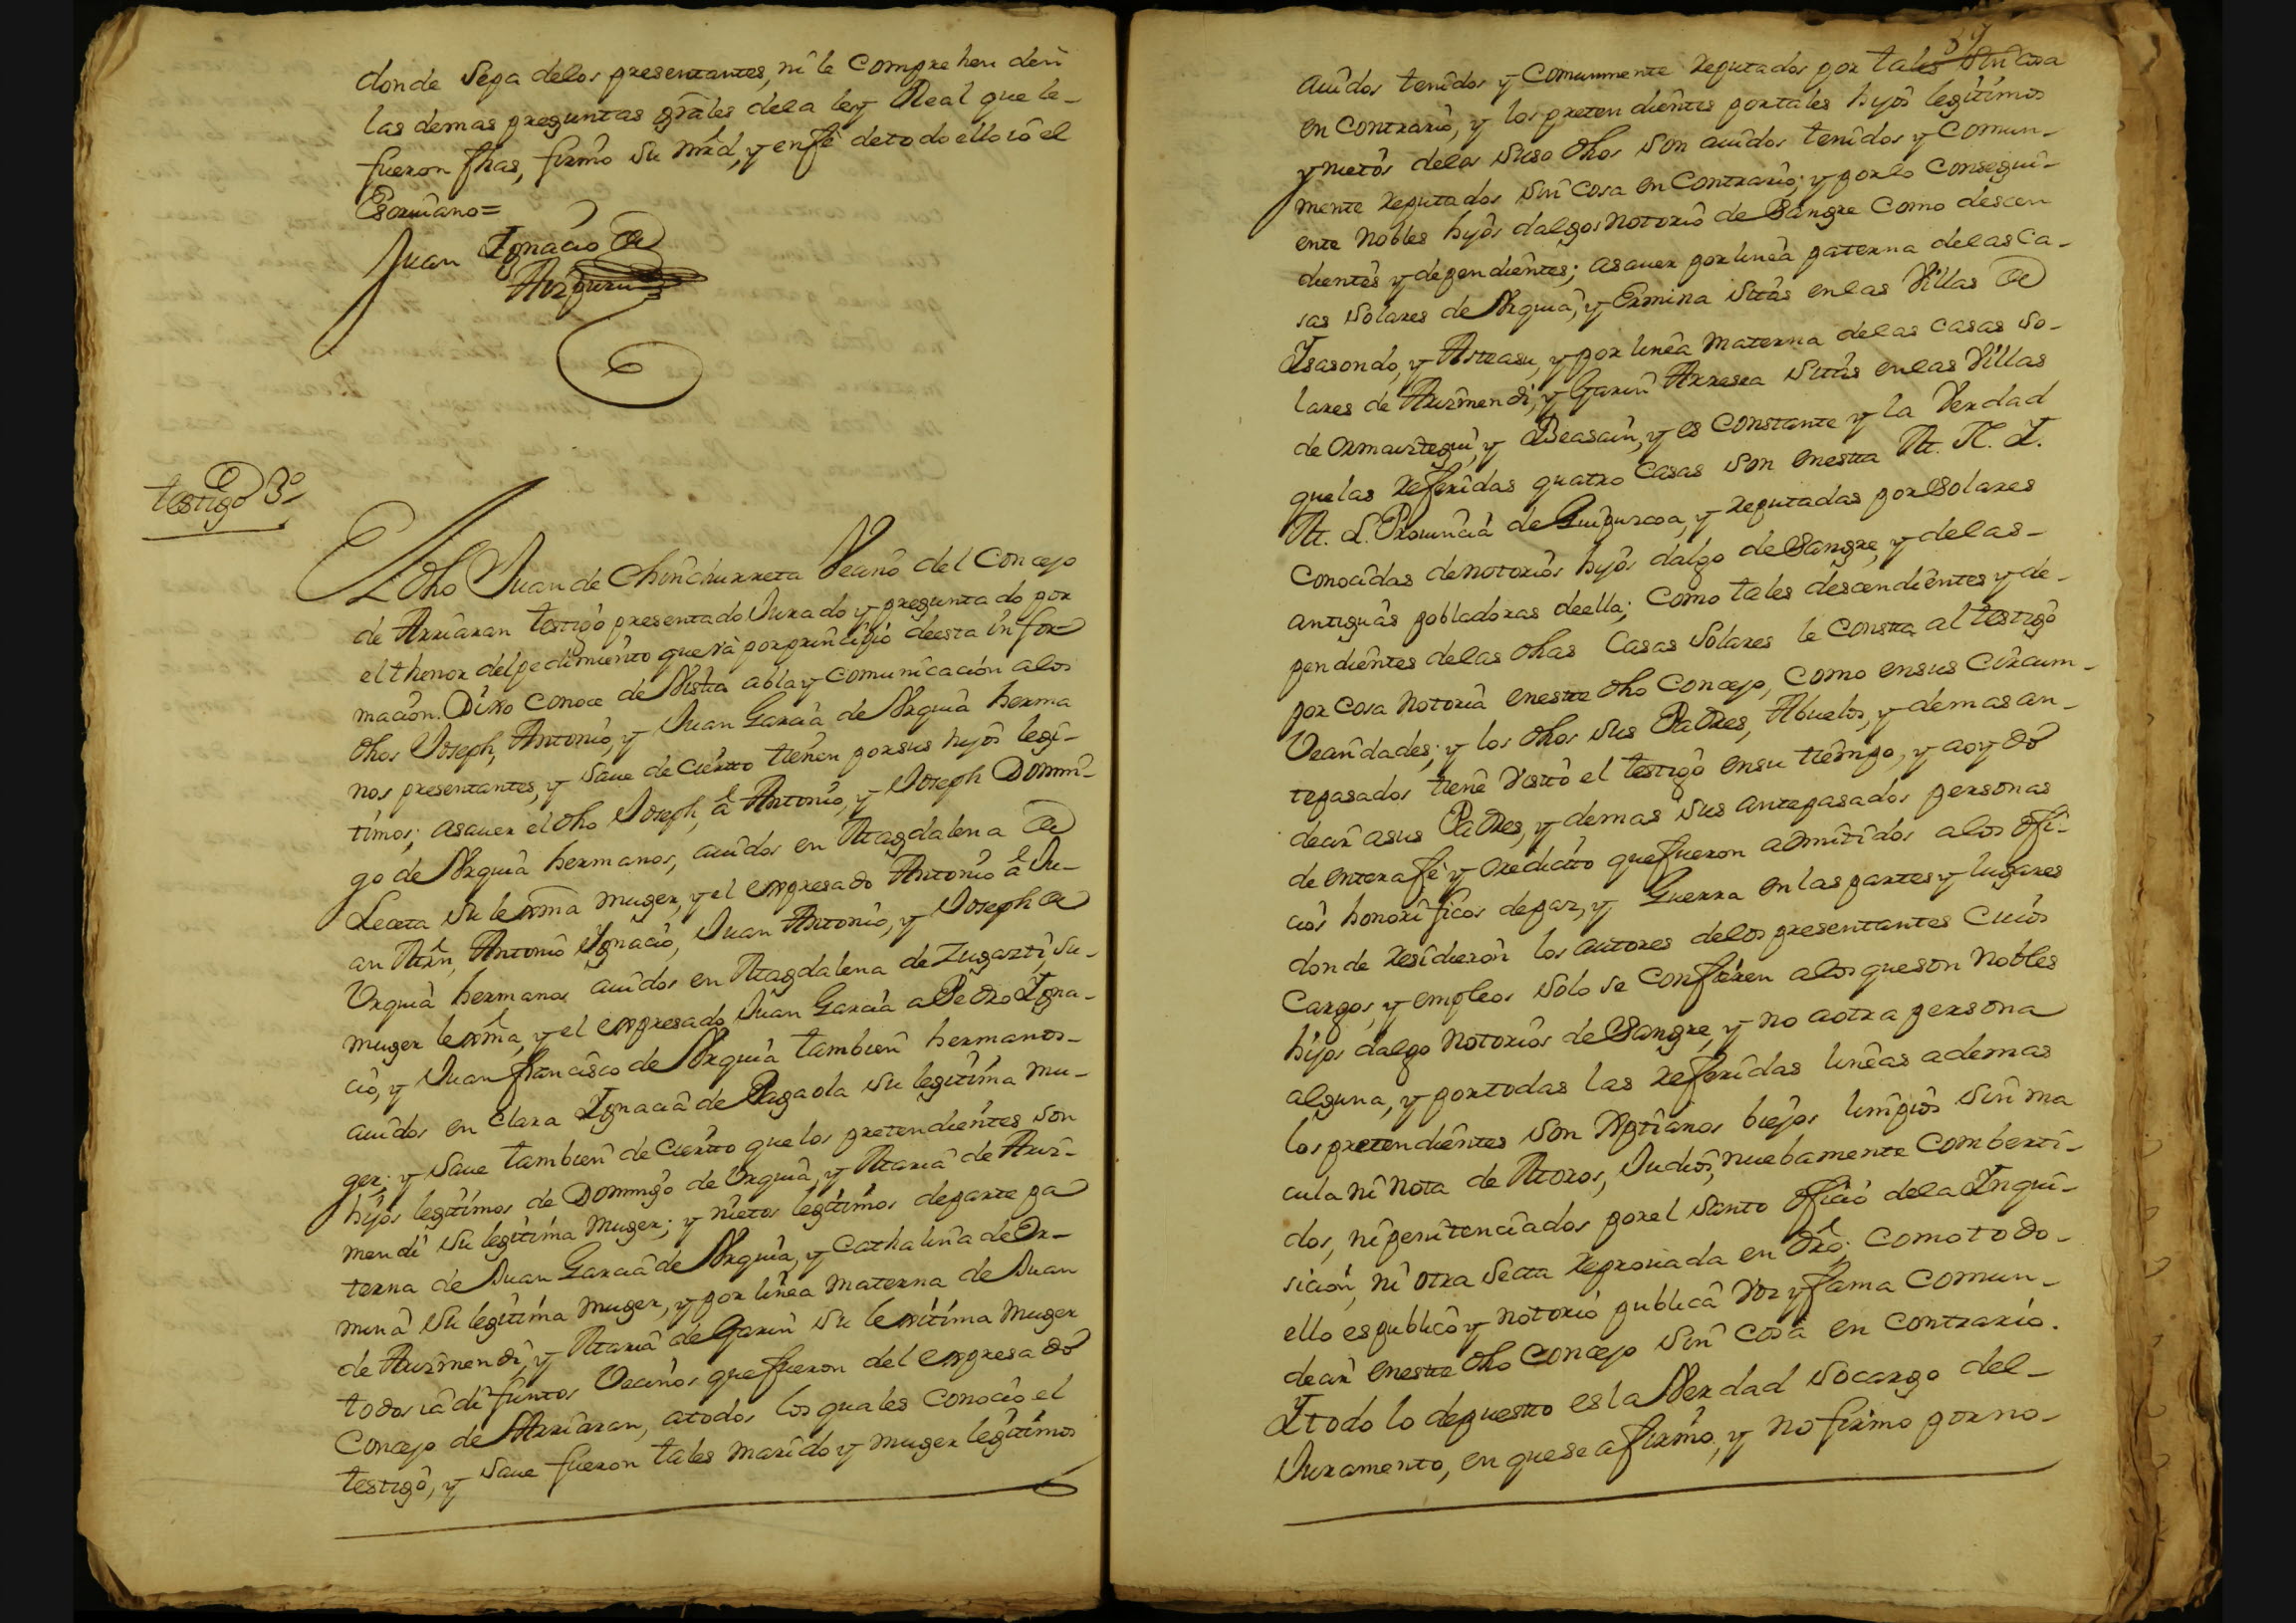 donde Sepa delos presentantes, ni le Comprehenden
las demas preguntas grâles dela ley Real que le-
fueron fhas, firmo Su mrd, y enfè detodo ello io el
Escriuano=
Juan Ignacio de
testigo 3º
El dho Juan de Chinchurreta Vecino del Concejo
de Arriaran testigo presentado Jurado y preguntado por
el thenor delpedimiento que và por prinçipio deesta infor
maçion. Dixo Conoce de Vista abla y Comunicaçion alos
dhos Joseph, Antonio, y Juan Garcia de Vrquia herma
nos presentantes, y Saue de Cierto tienen porsus hijos legi-
timos; asauer el dho Joseph, â Antonio, y Joseph Domin-
go de Vrquia hermanos, auidos en Magdalena de
Leceta Su lexma muger, y el expresado Antonio â Ju-
an Mrn, Antonio Ygnacio, Juan Antonio, y Joseph de
Vrquia hermanos auidos en Magdalena de Zugazti, Su-
muger lexma, y el expresado Juan Garcia a Pedro Igna-
cio, y Juan francisco de Vrquia tambien hermanos-
auidos en Clara Ignacia de Pagaola Su legitima mu-
ger; y Saue tambien de Cierto que los pretendientes son
hijos legitimos de Domingo de Vrquia, y Maria de Auz-
mendi Su legitima muger; y nietos legitimos departe pa
terna de Juan Garcia de Vrquia, y Cathalina de Er-
mina Su legitima muger, y por linea materna de Juan
de Auzmendi, y Maria de Garin Su lexitima muger
todos ia difuntos Vecinos que fueron del expresado
Concejo de Arriaran, atodos los quales Conocio el
testigo, y Saue fueron tales marido y muger legitimos
auidos tenidos y Comunmente reputados por tales Sin Cosa
en Contrario, y los pretendientes portales hijos legitimos
y nietos delos Suso dhos son auidos tenidos y Comun-
mente reputados Sin Cosa en Contrario; y porlo Consegui-
ente Nobles hijos dalgos Notorio de Sangre Como descen
dientes y dependientes; asauer por linea paterna delas Ca-
sas Solares de Vrquia, y Ermina Sitas enlas Villas de
Isasondo, y Asteasu, y por linea Materna delas Casas So-
lares de Auzmendi, y Garin Arresea Sitas enlas Villas
de Ormaiztegui, y Beasain, y es Constante y la Verdad
quelas referidas quatro Casas son enesta M. N. Y.
M. L. Prouincia de Guipuzcoa, y reputadas por Solares
Conocidas denotorios hijos dalgo de Sangre, y delas-
antiguas pobladoras deella; Como tales descendientes y de-
pendientes delas dhas Casas Solares le Consta al testigo
por Cosa Notoria eneste dho Concejo, Como ensus Circum-
Vecindades; y los dhos sus Padres, Abuelos, y demas an-
tepasados tiene Visto el testigo ensu tiempo, y aoydo
decir asus Padres, y demas Sus antepasados personas
de entera fè y credicto que fueron admitidos alos Ofi-
cios honorificos depaz, y Guerra en las partes y lugares
donde residieron los autores delos presentantes Cuios
Cargos, y empleos Solo se Confieren alos queson Nobles
hijos dalgo Notorios de Sangre, y no aotra persona
alguna, y por todas las referidas lineas ademas
los pretendientes son Xptianos biejos limpios Sin ma
cula ni Nota de Moros, Judios, nuebamente Comberti-
dos, ni penitenciados porel Santo Oficio dela Inqui-
sicion, ni otra Secta reprouada en dro; Como todo-
ello espublico y notorio publica Voz y fama Comun-
decir eneste dho Concejo Sin Cosa en Contrario.
I todo lo depuesto es la Verdad Socargo del-
Juramento, en quese afirmo, y no firmo porno-